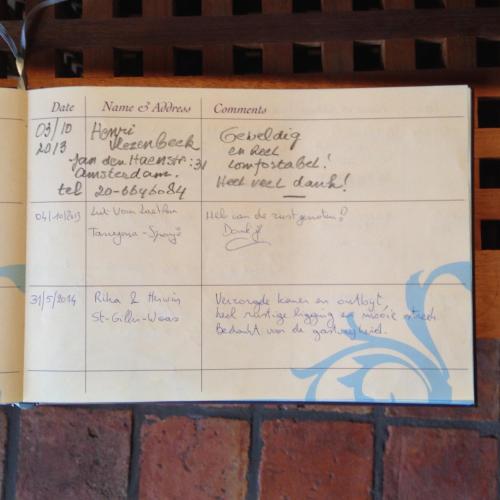 Date Name & Address Comments
03/10
2013
Henri
Vezenbeek
Jan den Haenstr: 31
Amsterdam.
tel 20-6646084
Geweldig
en heel
comfostabel!
Heel veel dank!
04/10/2013
Tarragona - Spanje
van de rust genoten!
Dank je
31/5/2014
Rika & Herwin
St-Gillis-Waas
Verzorgde kamer en ontbijt,
heel rustige ligging en mooie streek
Bedankt voor de gastvrijheid.